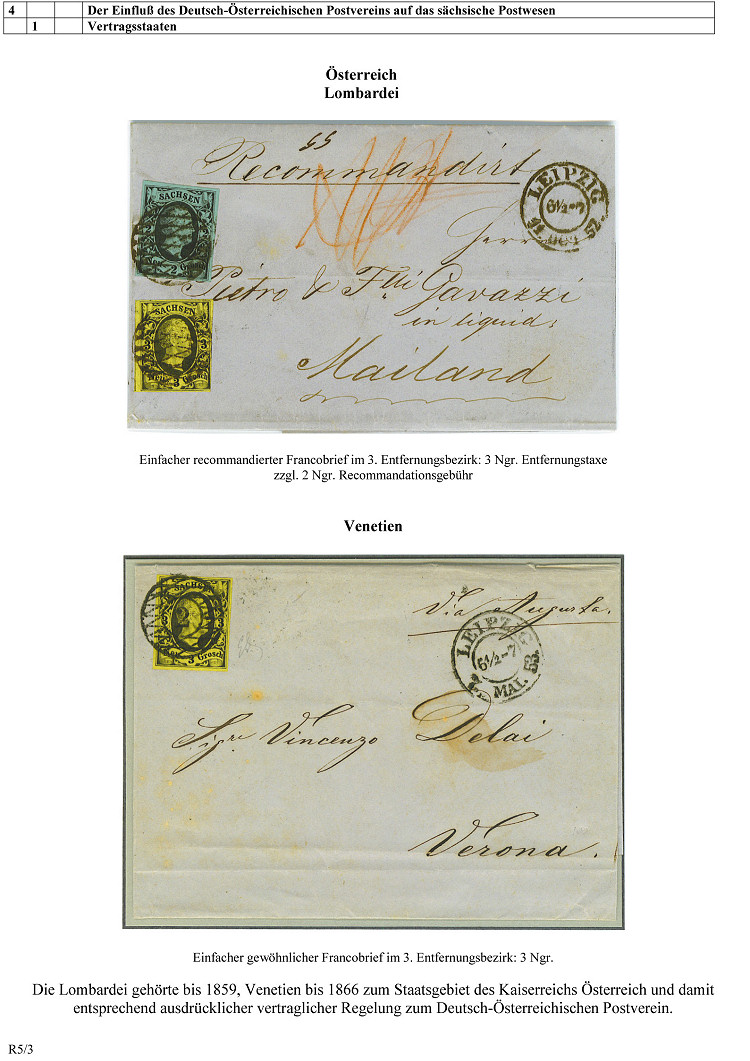 4 Der Einfluß des Deutsch-Österreichischen Postvereins auf das sächsische Postwesen
1 Vertragsstaaten
Österreich
Lombardei
55
Recommandirt
SACHSEN
2
LEIPZIG
6½-7
52
Herrn
Pietro & Flli Gavazzi
in liquid:
Mailand
SACHSEN
3 3
3
Einfacher recommandierter Francobrief im 3. Entfernungsbezirk: 3 Ngr. Entfernungstaxe
zzgl. 2 Ngr. Recommandationsgebühr
Venetien
3 3
3 Grosch
Via Augusta.
LEIPZIG
6½-7
MAI. 53.
Sigre Vincenzo Delai
Verona.
Einfacher gewöhnlicher Francobrief im 3. Entfernungsbezirk: 3 Ngr.
Die Lombardei gehörte bis 1859, Venetien bis 1866 zum Staatsgebiet des Kaiserreichs Österreich und damit
entsprechend ausdrücklicher vertraglicher Regelung zum Deutsch-Österreichischen Postverein.
R5/3